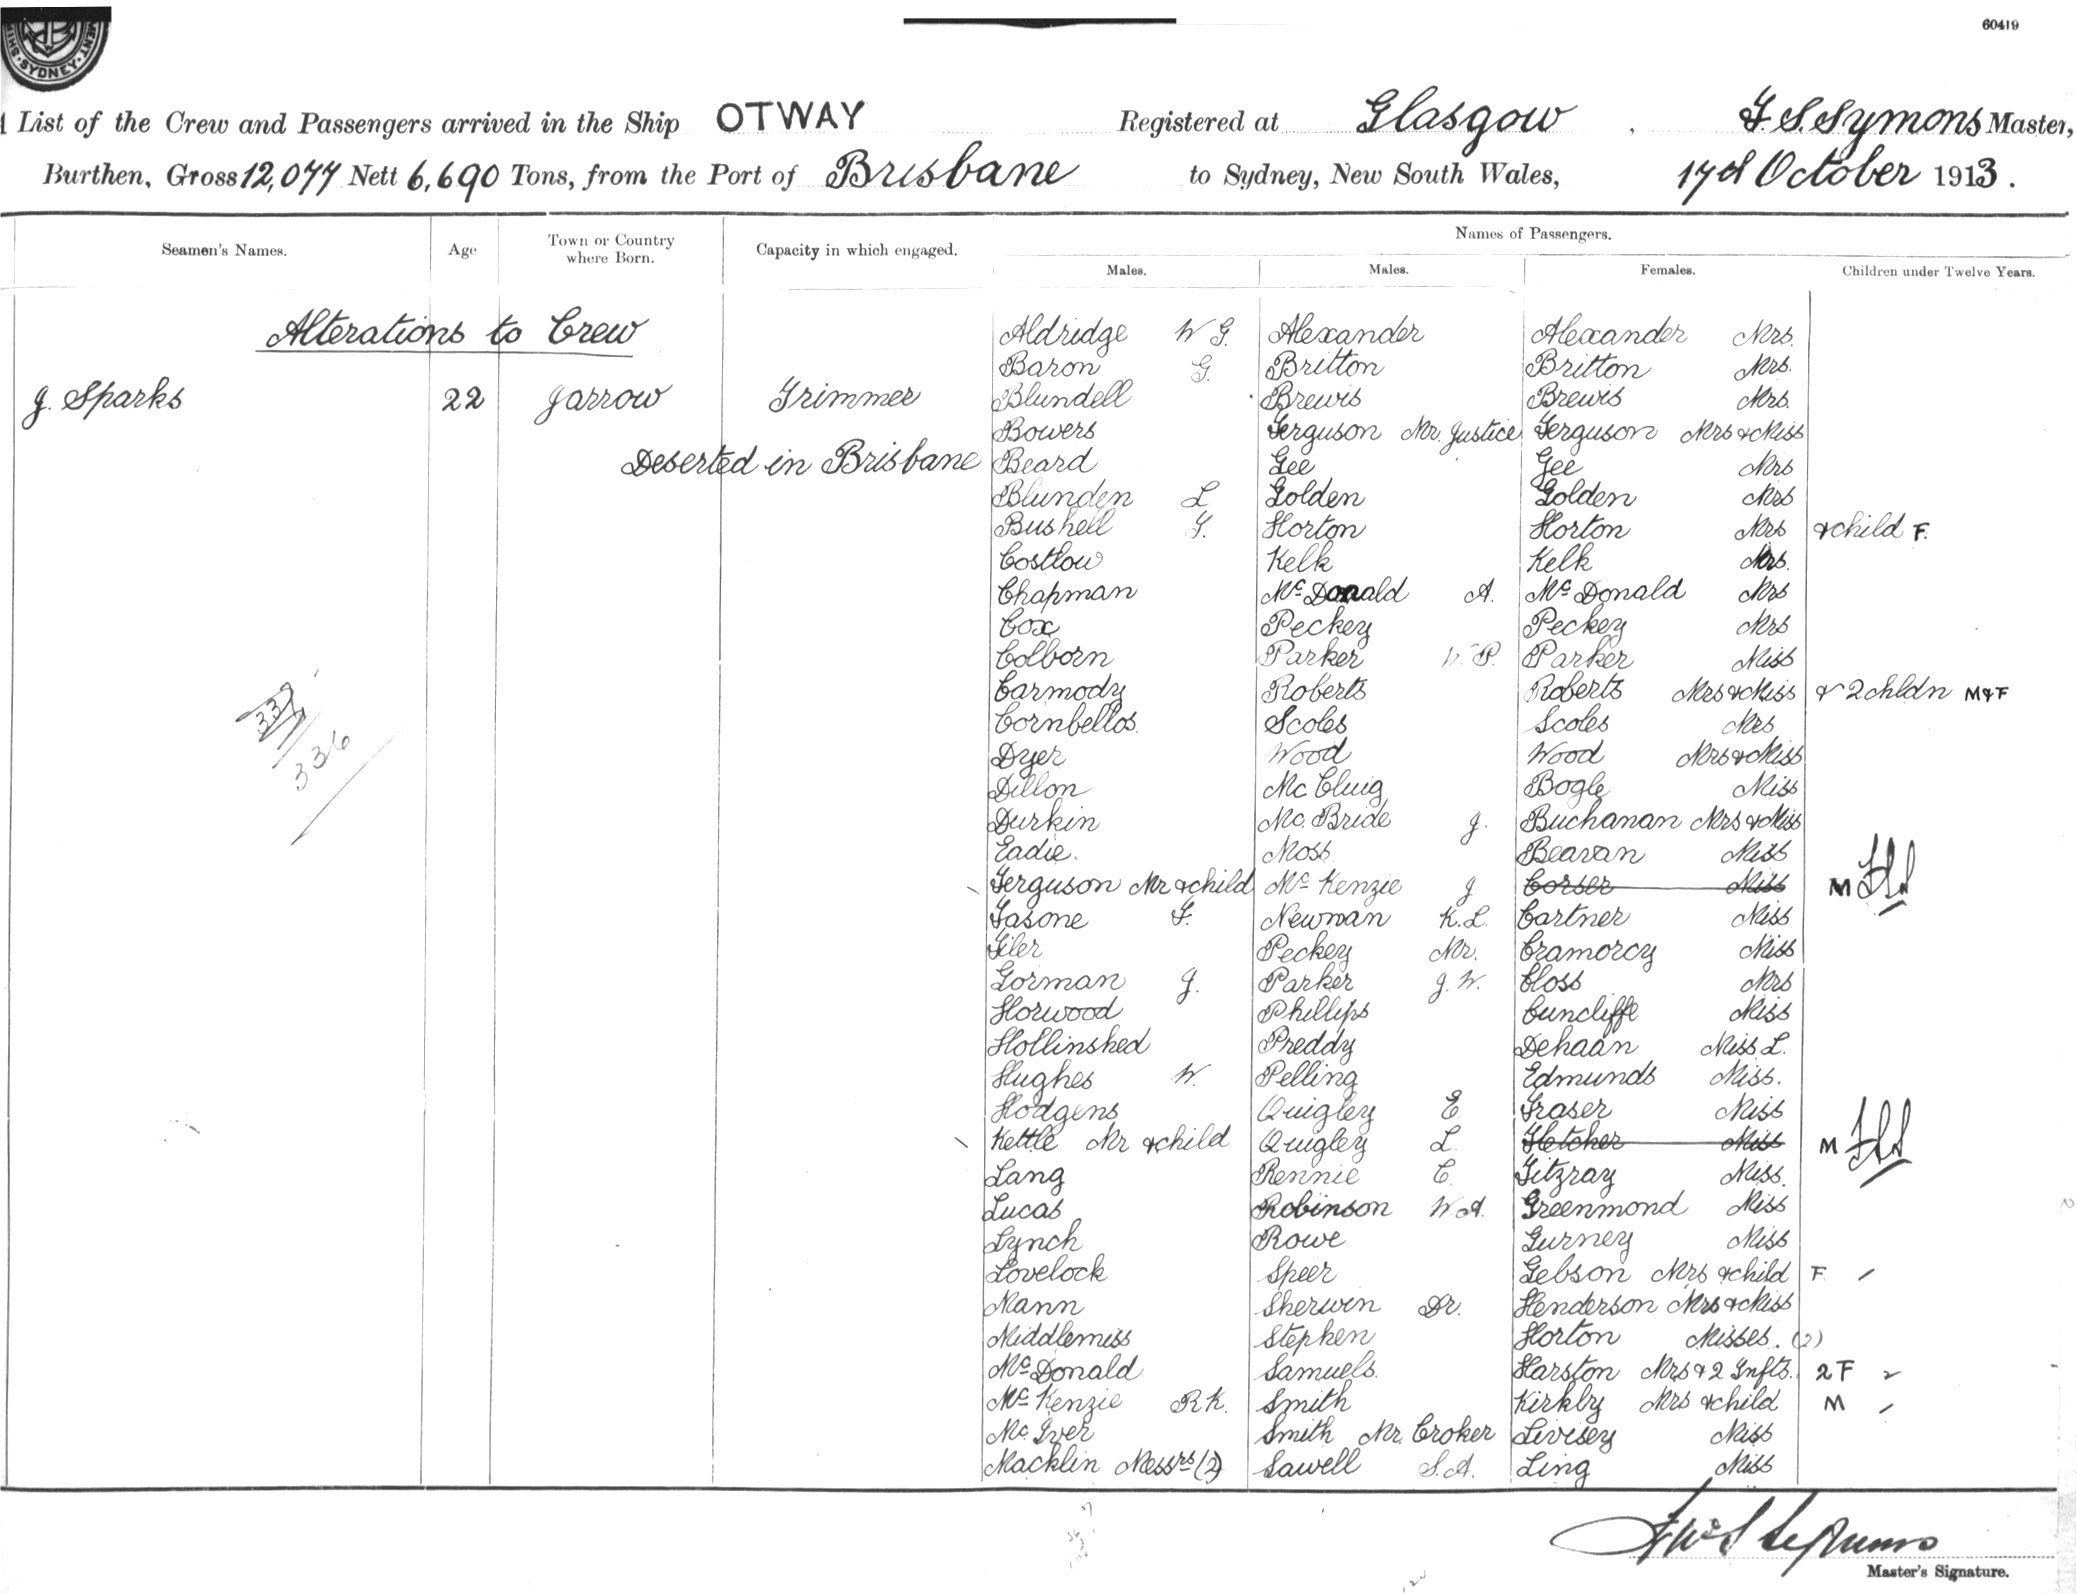 60419
SYDNEY
List of the Crew and Passengers arrived in the Ship OTWAY Registered at Glasgow, F. S. Symons Master,
Burthen, Gross 12,077 Nett 6,690 Tons, from the Port of Brisbane to Sydney, New South Wales, 17th October 1913.
Seamen's Names. Age Town or Country where Born. Capacity in which engaged. Names of Passengers.
Males. Males. Females. Children under Twelve Years.
Alterations to Crew
J. Sparks 22 Jarrow Trimmer
Deserted in Brisbane
337
336
Aldridge W G. Alexander Alexander Mrs.
Baron G. Britton Britton Mrs.
Blundell Brewis Brewis Mrs.
Bowers Ferguson Mr. Justice Ferguson Mrs & Miss
Beard Gee Gee Mrs
Blunden L Golden Golden Mrs
Bushell G. Horton Horton Mrs & child F.
Costlow Kelk Kelk Mrs.
Chapman McDonald A. McDonald Mrs
Cox Peckey Peckey Mrs
Colborn Parker W. P. Parker Miss
Carmody Roberts Roberts Mrs & Miss & 2 chldn M & F
Cornbellos. Scoles Scoles Mrs
Dyer Wood Wood Mrs & Miss
Dillon McCluig Bogle Miss
Durkin Mc. Bride J. Buchanan Mrs & Miss
Eadie. Moss Bearan Miss
Ferguson Mr & child McKenzie J Corser Miss M
Fasone F. Newman K. L. Cartner Miss
Giler Peckey Mr. Cramorcy Miss
Gorman J. Parker J. W. Closs Mrs
Horwood Phillips Cuncliffe Miss
Hollinshed Preddy Dehaan Miss L.
Hughes W. Pelling Edmunds Miss.
Hodgens Quigley E Fraser Miss
Kettle Mr & child Quigley L. Fletcher Miss M
Lang Rennie C. Fitzray Miss.
Lucas Robinson W A. Greenmond Miss
Lynch Rowe Gurney Miss
Lovelock Speer Gebson Mrs & child F.
Mann Sherwen Dr. Henderson Mrs & Miss
Middlemiss Stephen Horton Misses. (2)
McDonald Samuels. Harston Mrs & 2 Infts. 2 F
McKenzie R K. Smith Kirkby Mrs & child M
Mc. Iver Smith Mr. Croker Livisey Miss
Macklin Messrs (2) Sawell S. A. Ling Miss
Master's Signature.